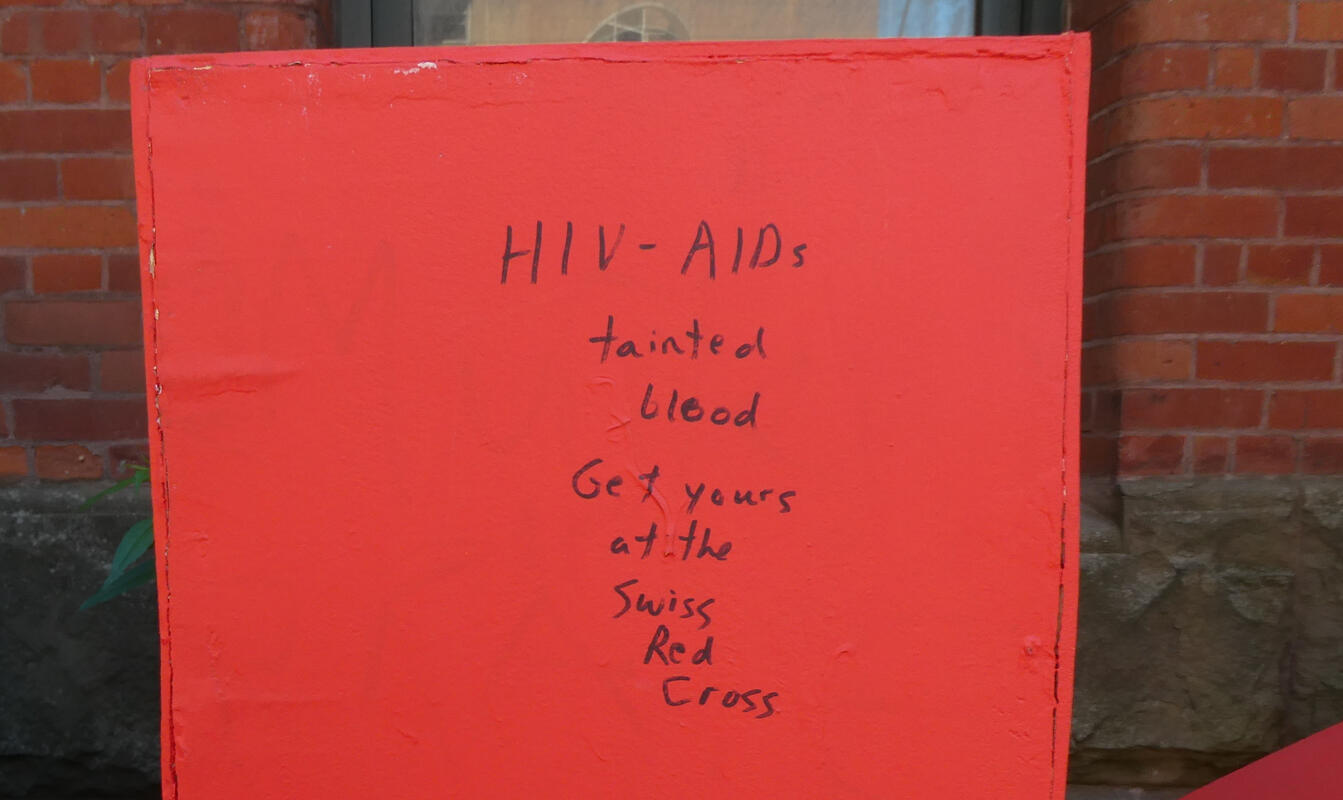 HIV-AIDs
tainted
blood
Get yours
at the
Swiss
Red
Cross